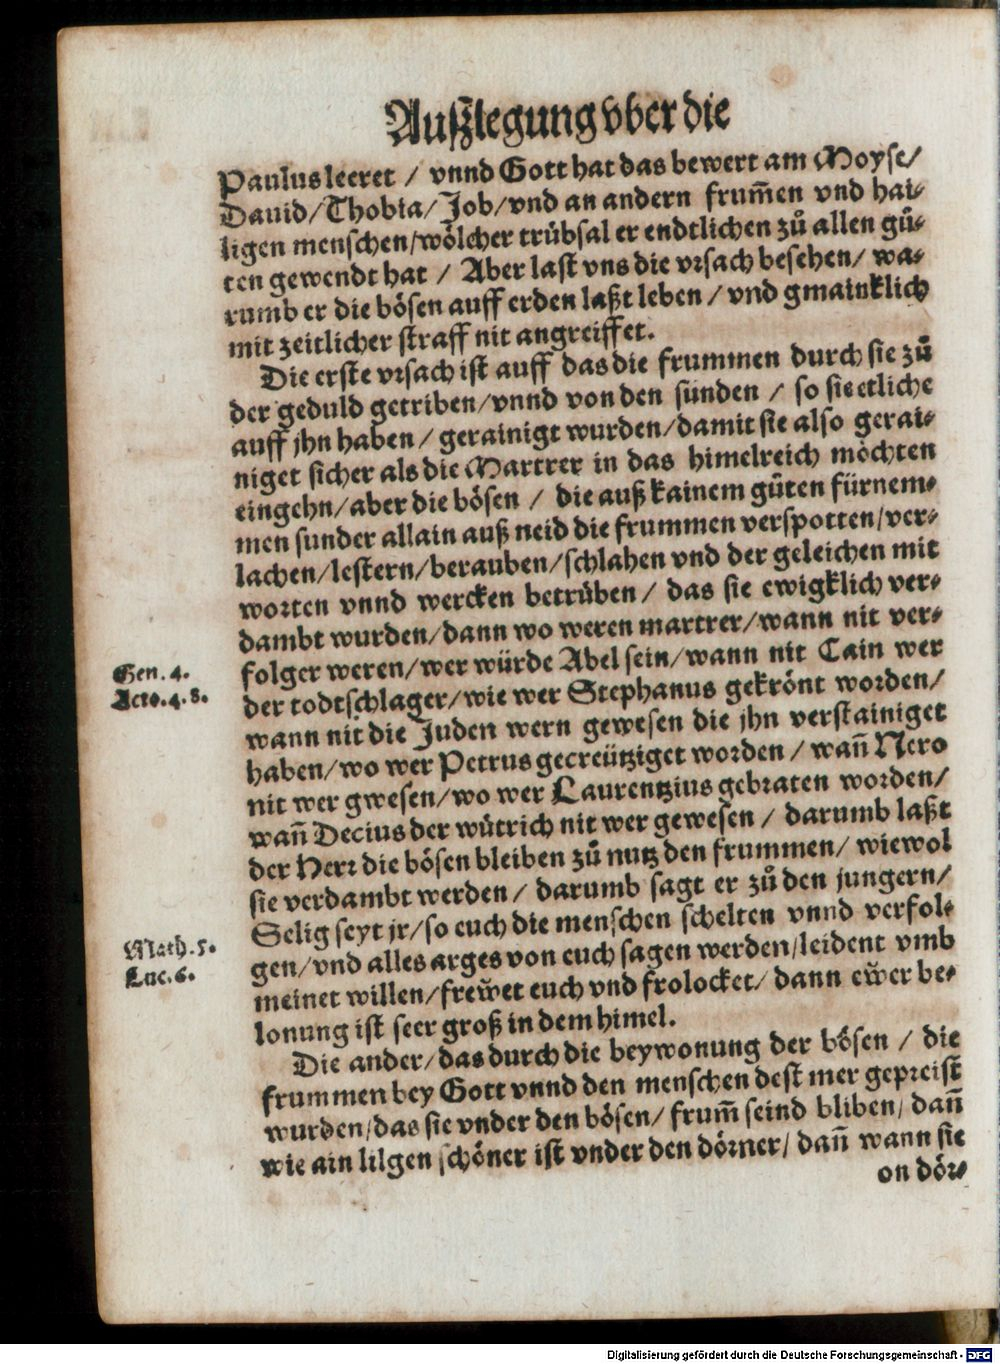 Außlegung vber die
Paulus leeret / vnnd Gott hat das bewert am Moyse/
Dauid/Thobia/Job/vnd an andern frum̃en vnd hai⸗
ligen menschen/wölcher trübsal er endtlichen zů allen gů⸗
ten gewendt hat / Aber last vns die vrsach besehen/ wa⸗
rumb er die bösen auff erden laßt leben / vnd gmainklich
mit zeitlicher straff nit angreiffet.
Die erste vrsach ist auff das die frummen durch sie zů
der geduld getriben/vnnd von den sünden / so sie etliche
auff jhn haben / gerainigt wurden/damit sie also gerai⸗
niget sicher als die Martrer in das himelreich möchten
eingehn/aber die bösen / die auß kainem gůten fürnem⸗
men sunder allain auß neid die frummen verspotten/ver⸗
lachen/lestern/berauben/schlahen vnd der geleichen mit
worten vnnd wercken betrüben / das sie ewigklich ver⸗
dambt wurden/dann wo weren martrer/wann nit ver⸗
Gen. 4.
folger weren/wer würde Abel sein/wann nit Cain wer
Acto.4.8.
der todtschlager/wie wer Stephanus gekrönt worden/
wann nit die Juden wern gewesen die jhn verstainiget
haben/wo wer Petrus gecreütziget worden / wañ Nero
nit wer gwesen/wo wer Laurentzius gebraten worden/
wañ Decius der wůtrich nit wer gewesen / darumb laßt
der Herr die bösen bleiben zů nutz den frummen/ wiewol
sie verdambt werden / darumb sagt er zů den jungern/
Selig seyt jr/so euch die menschen schelten vnnd verfol⸗
Math.5.
gen/vnd alles arges von euch sagen werden/leident vmb
Luc.6.
meinet willen/frew̃et euch vnd frolocket/ dann ew̃er be⸗
lonung ist seer groß in dem himel.
Die ander/das durch die beywonung der bösen / die
frummen bey Gott vnnd den menschen dest mer gepreist
wurden/das sie vnder den bösen/ frum̃ seind bliben/ dañ
wie ain lilgen schöner ist vnder den dörner/ dañ wann sie
on dör⸗
Digitalisierung gefördert durch die Deutsche Forschungsgemeinschaft - DFG